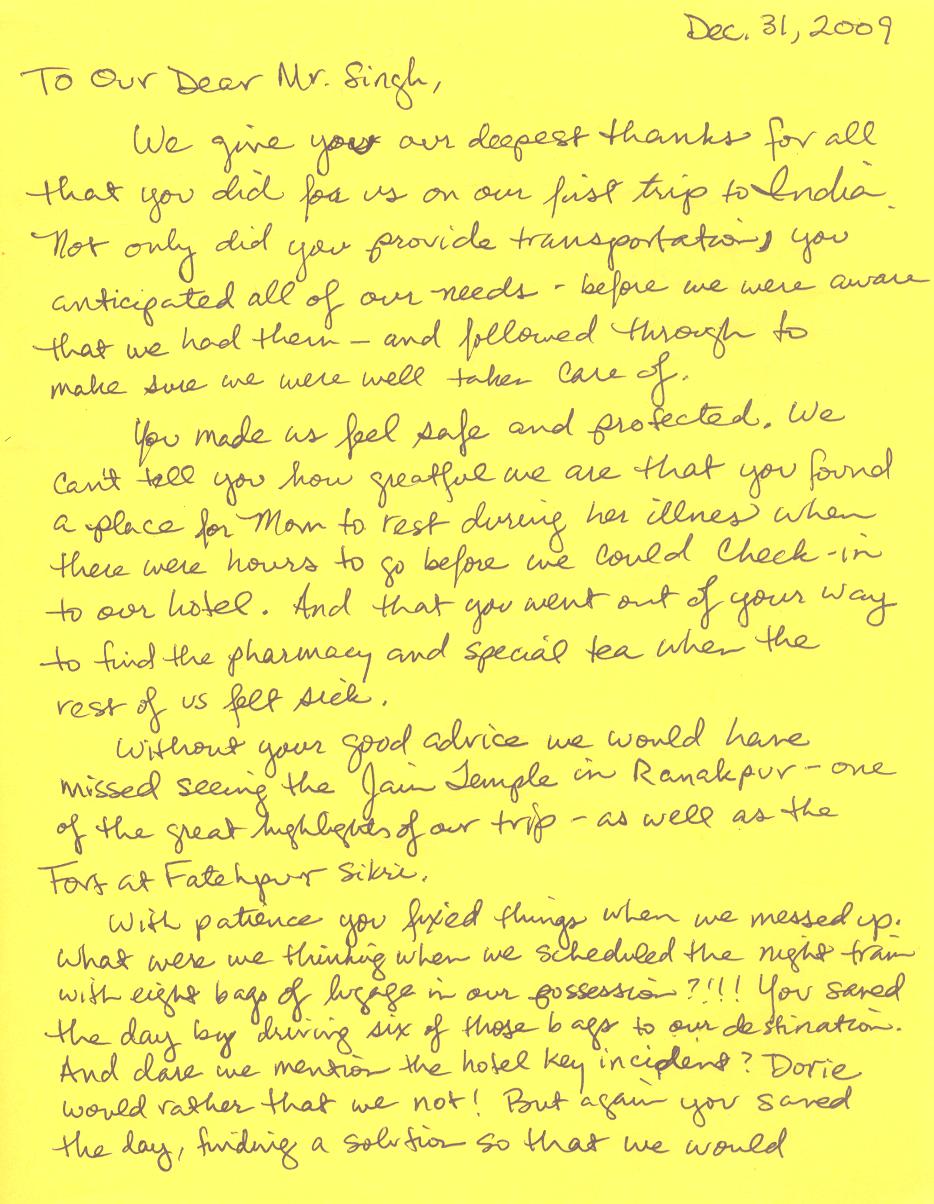 Dec. 31, 2009
To Our Dear Mr. Singh,
We give you our deepest thanks for all
that you did for us on our first trip to India.
Not only did you provide transportation, you
anticipated all of our needs - before we were aware
that we had them - and followed through to
make sure we were well taken care of.
You made us feel safe and protected. We
can't tell you how greatful we are that you found
a place for Mom to rest during her illnes when
there were hours to go before we could check-in
to our hotel. And that you went out of your way
to find the pharmacy and special tea when the
rest of us felt sick.
Without your good advice we would have
missed seeing the Jain Temple in Ranakpur - one
of the great highlights of our trip - as well as the
Fort at Fatehpur Sikri.
With patience you fixied things when we messed up.
What were we thinking when we scheduled the night train
with eight bags of lugage in our possession?!!! You saved
the day by driving six of those bags to our destination.
And dare we mention the hotel key incident? Dorie
would rather that we not! But again you saved
the day, finding a solution so that we would